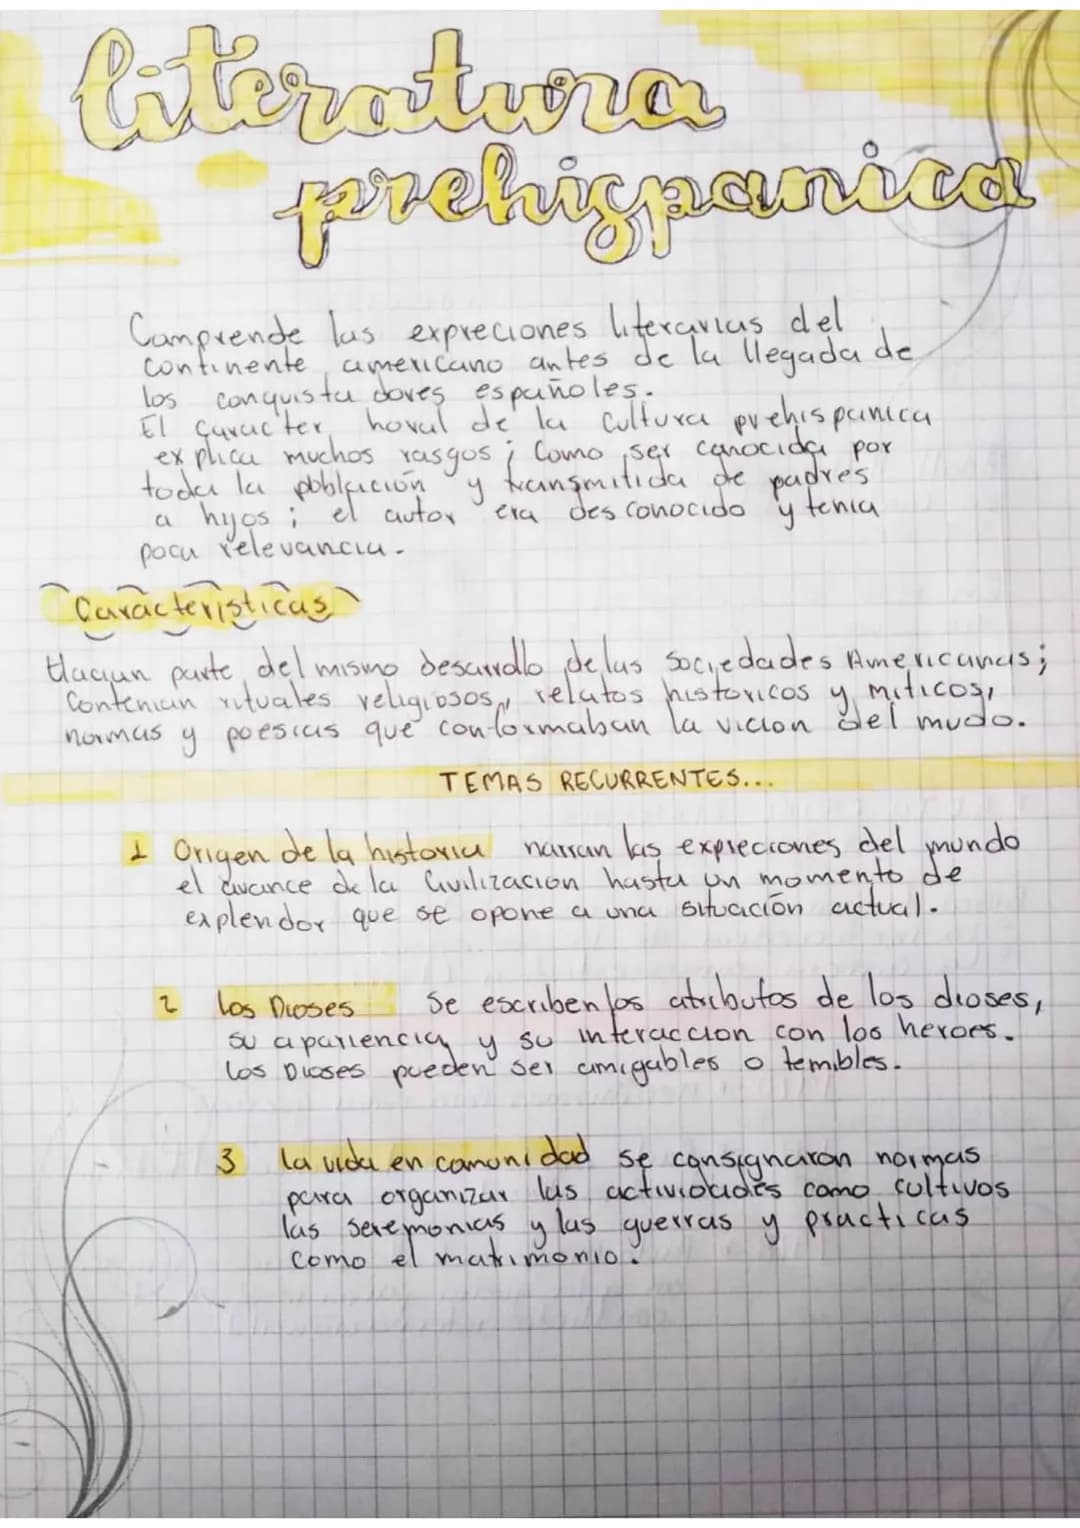 literatura
prehispanica
Comprende las expreciones literarias del
continente americano antes de la llegada de
los conquistadores españoles.
El caracter horal de la cultura prehispanica
explica muchos rasgos; Como ser conocida por
toda la población y transmitida de padres
a hijos; el autor era desconocido y tenia
poca relevancia.
Caracteristicas
Hacian parte del mismo desarrollo de las sociedades Americanas;
Contenian rituales religiosos, relatos historicos y miticos,
normas y poesias que conformaban la vicion del mudo.
TEMAS RECURRENTES...
1 Origen de la historia narran las expreciones del mundo
el avance de la Civilizacion hasta un momento de
explendor que se opone a una situación actual.
2 Los Dioses Se escriben los atributos de los dioses,
su apariencia y su interaccion con los heroes.
Los Dioses pueden ser amigables o temibles.
3 la vida en comunidad se consignaron normas
para organizar las actividades como cultivos
las seremonias y las guerras y practicas
como el matrimonio.